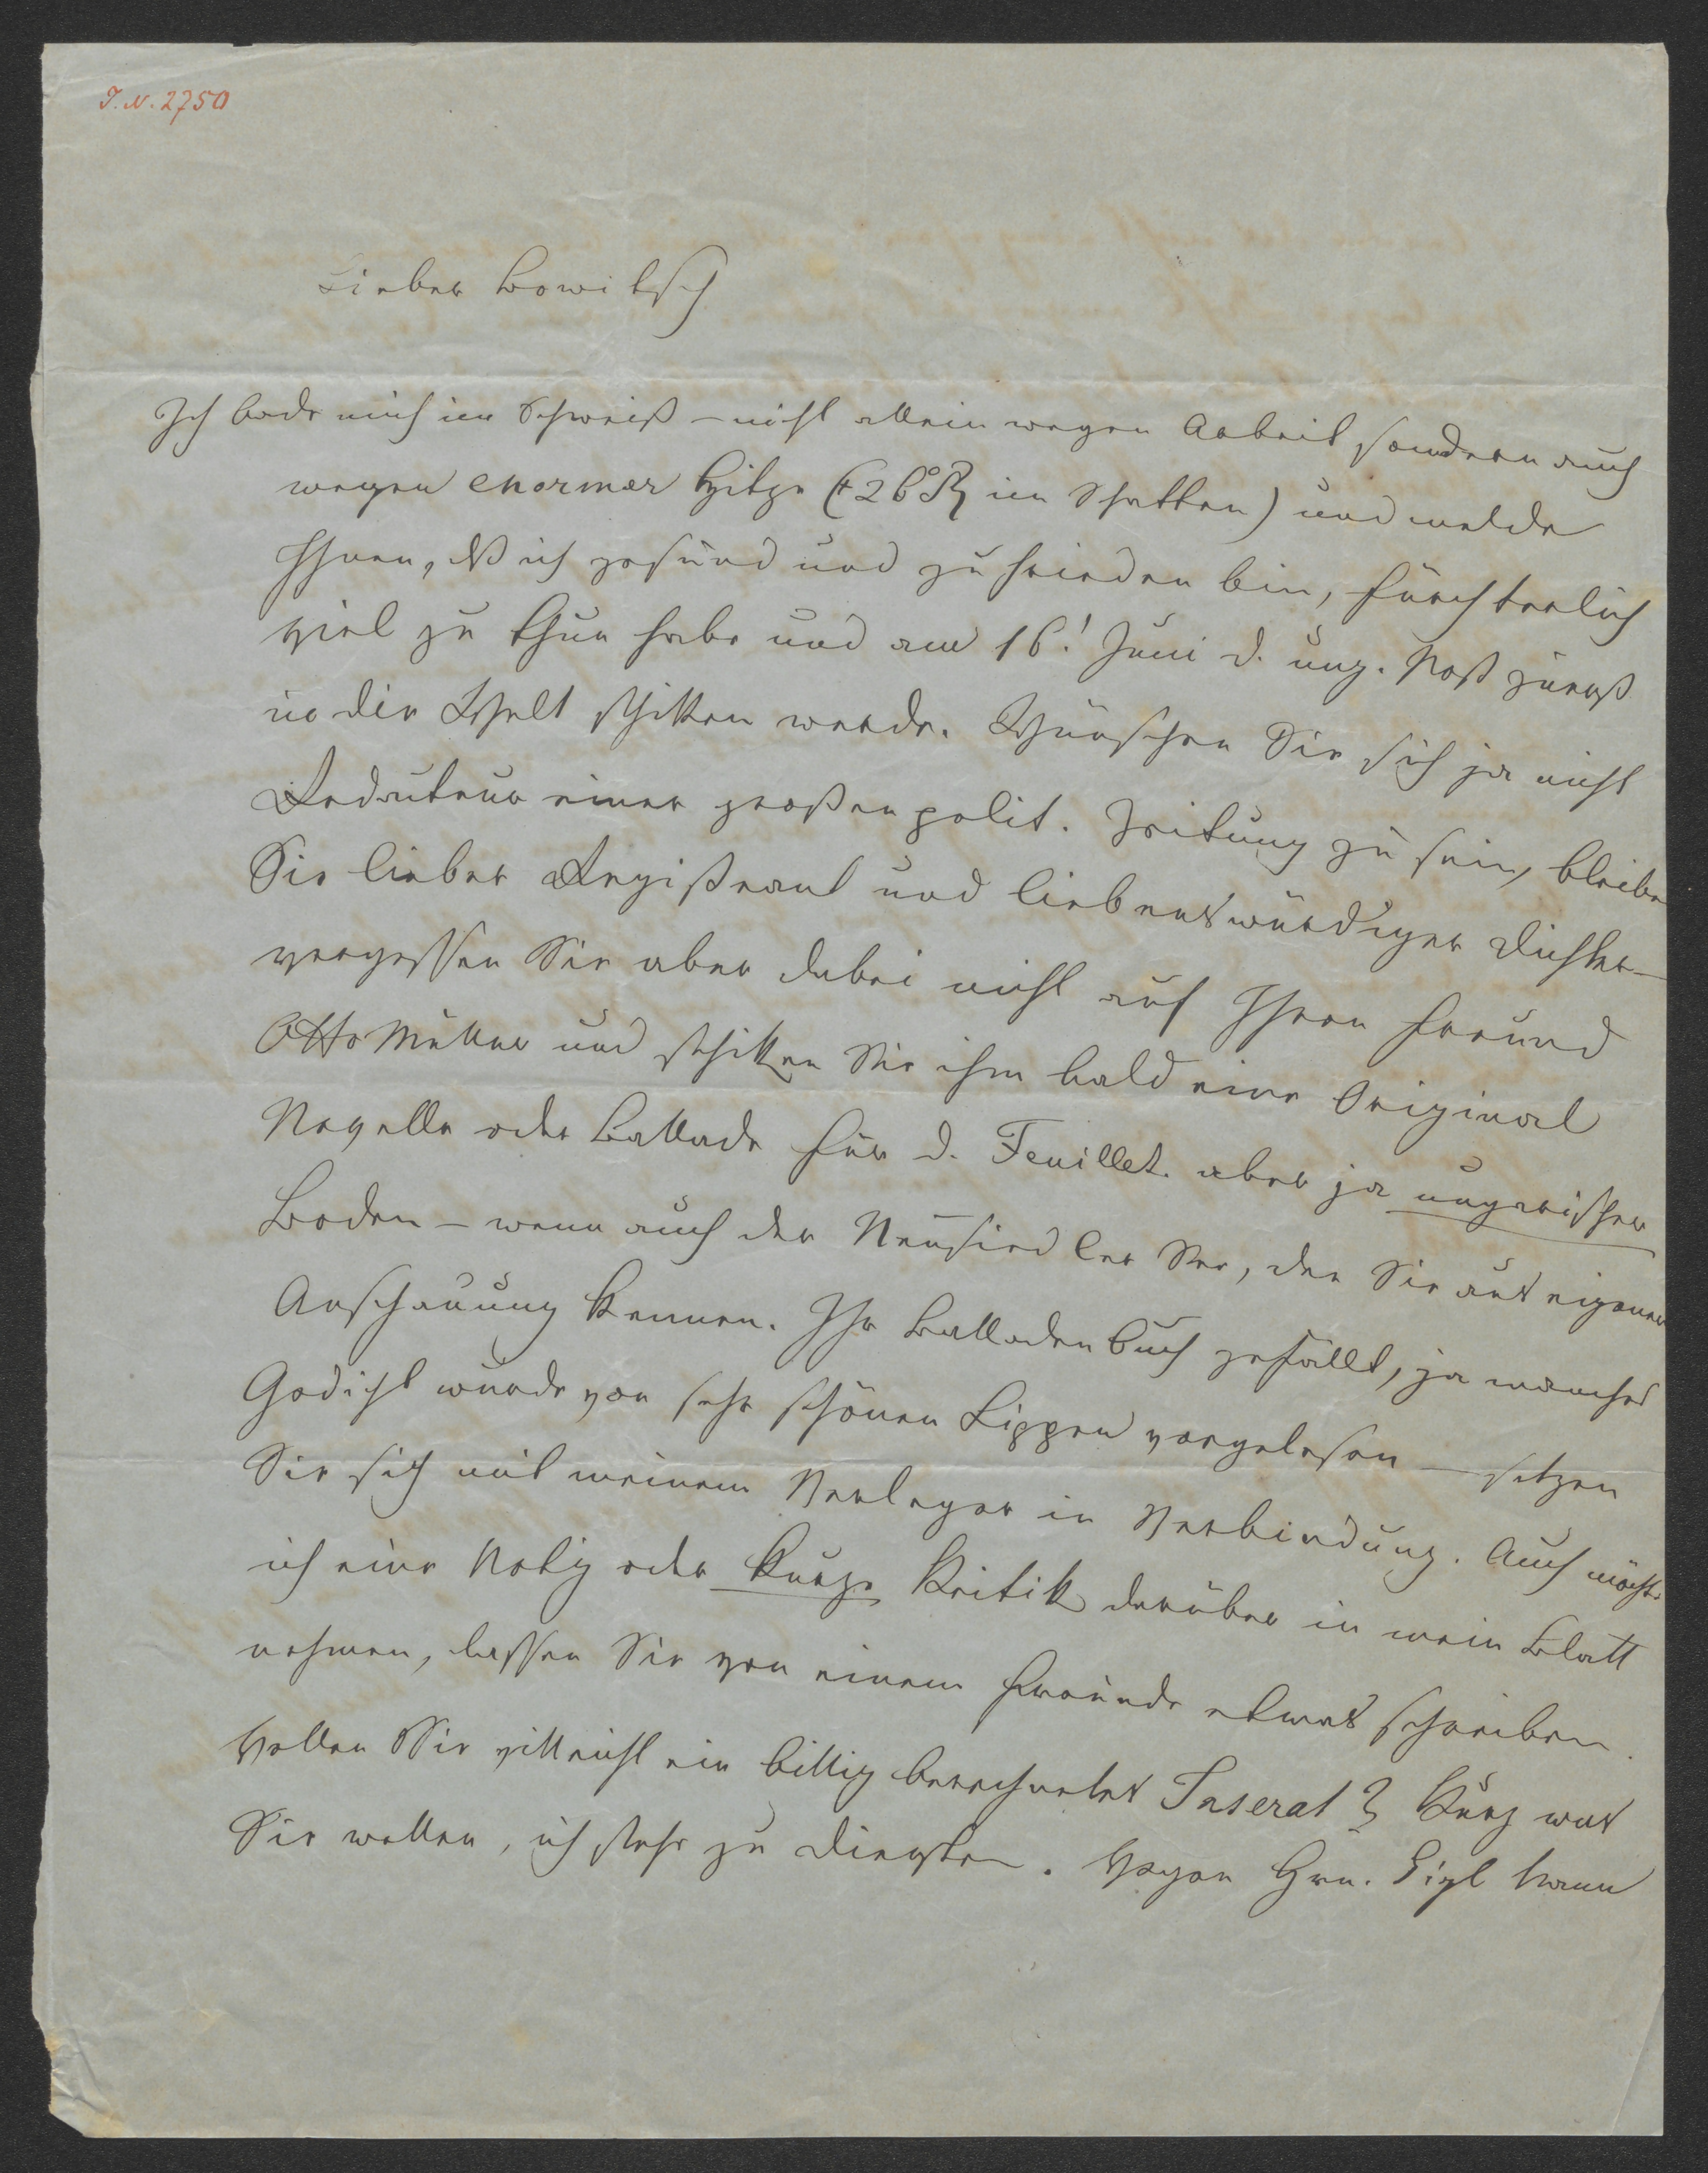 I. N. 2750
Lieber Bowitsch
Ich bade mich im Schweiß – nicht allein wegen Arbeit sondern auch
wegen enormer Hitze (+26°R im Schatten) und melde
Ihnen, dß ich gesund und zufrieden bin, fürchterlich
viel zu thun habe und am 16. Juni d. ung. Post zuerst
in die Welt schikken werde. Wünschen Sie sich ja nicht
Redacteur einer großen polit. Zeitung zu sein, bleiben
Sie lieber Registrant und liebenswürdiger Dichter –
vergessen Sie aber dabei nicht auf Ihren Freund
Otto Müller und schikken Sie ihm bald eine Original
Novelle oder Ballade für d. Feuillet. aber ja ungarischer
Boden – wenn auch der Neusiedler See, den Sie aus eigener
Anschauung kennen. Ihr Balladenbuch gefällt, ja manches
Gedicht wurde von sehr schönen Lippen vorgelesen – setzen
Sie sich mit meinem Verleger in Verbindung. Auch möchte
ich eine Notiz oder kurze Kritik darüber in mein Blatt
nehmen, lassen Sie von einem Freunde etwas schreiben.
Wollen Sie villeicht ein billig berechnetes Inserat? Kurz was
Sie wollen, ich stehe zu Diensten. Wegen Hrn.